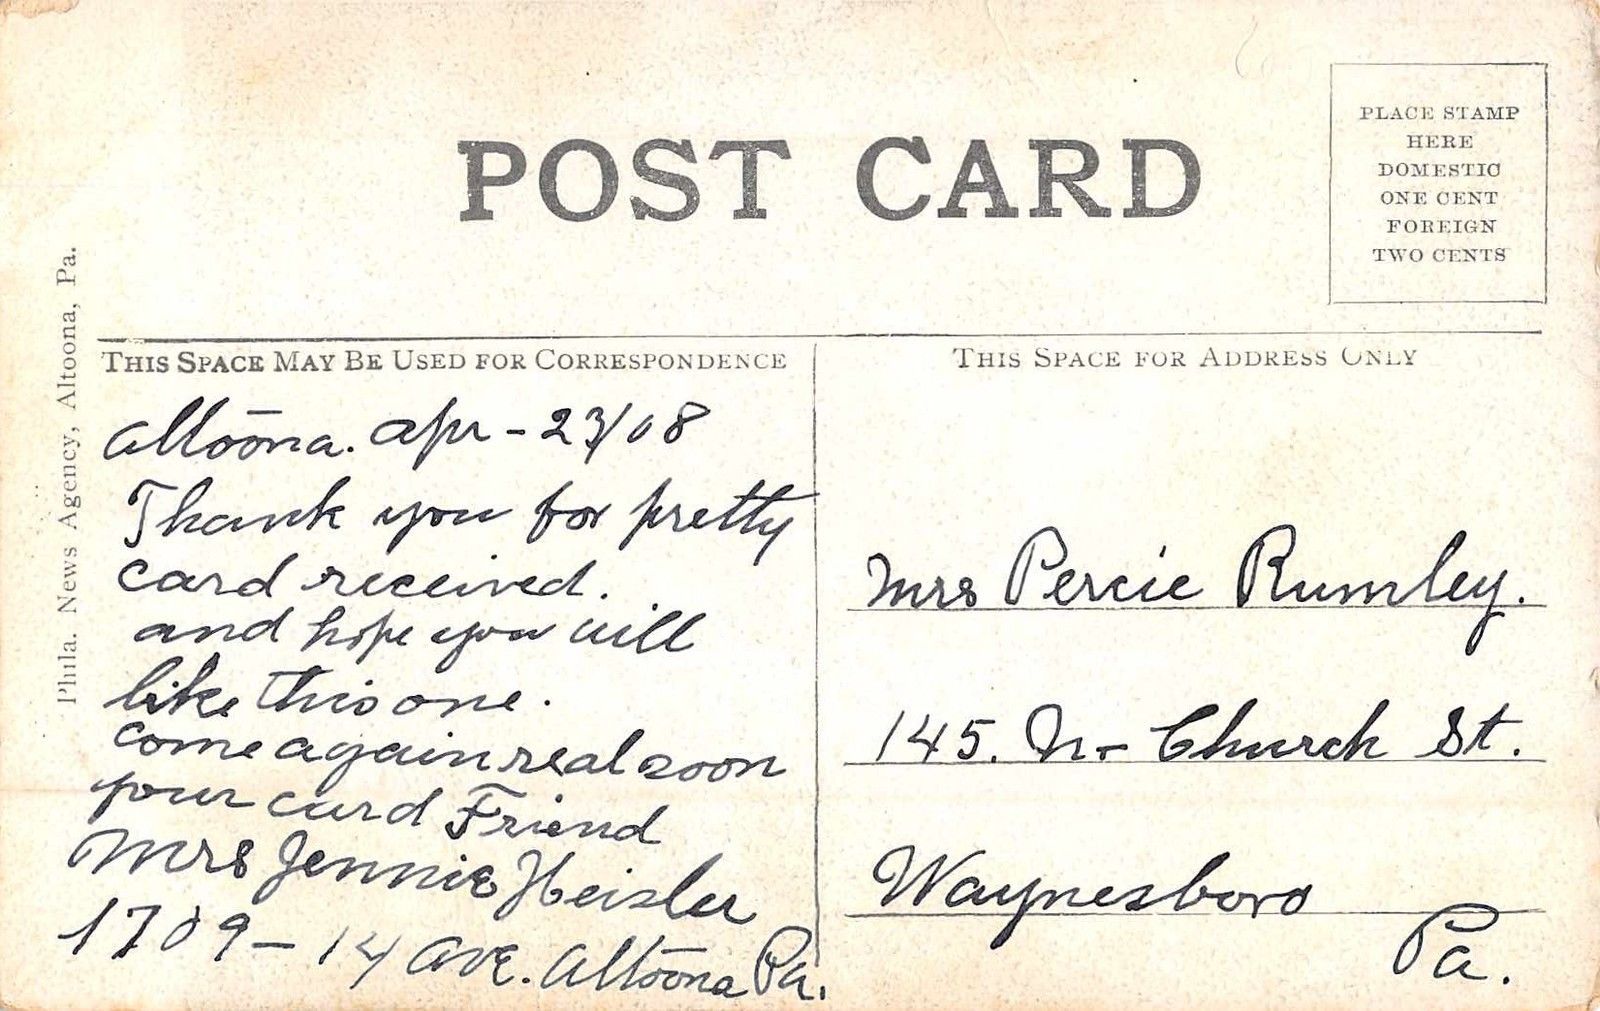 POST CARD
PLACE STAMP
HERE
DOMESTIC
ONE CENT
FOREIGN
TWO CENTS
Phila. News Agency, Altoona, Pa.
THIS SPACE MAY BE USED FOR CORRESPONDENCE
Altoona. Apr - 23/08
Thank you for pretty
card received.
and hope you will
like this one.
come again real soon
your card Friend
Mrs Jennie Heisler
1709 - 14 Ave. Altoona Pa.
THIS SPACE FOR ADDRESS ONLY
Mrs Percie Rumley.
145. N- Church St.
Waynesboro
Pa.